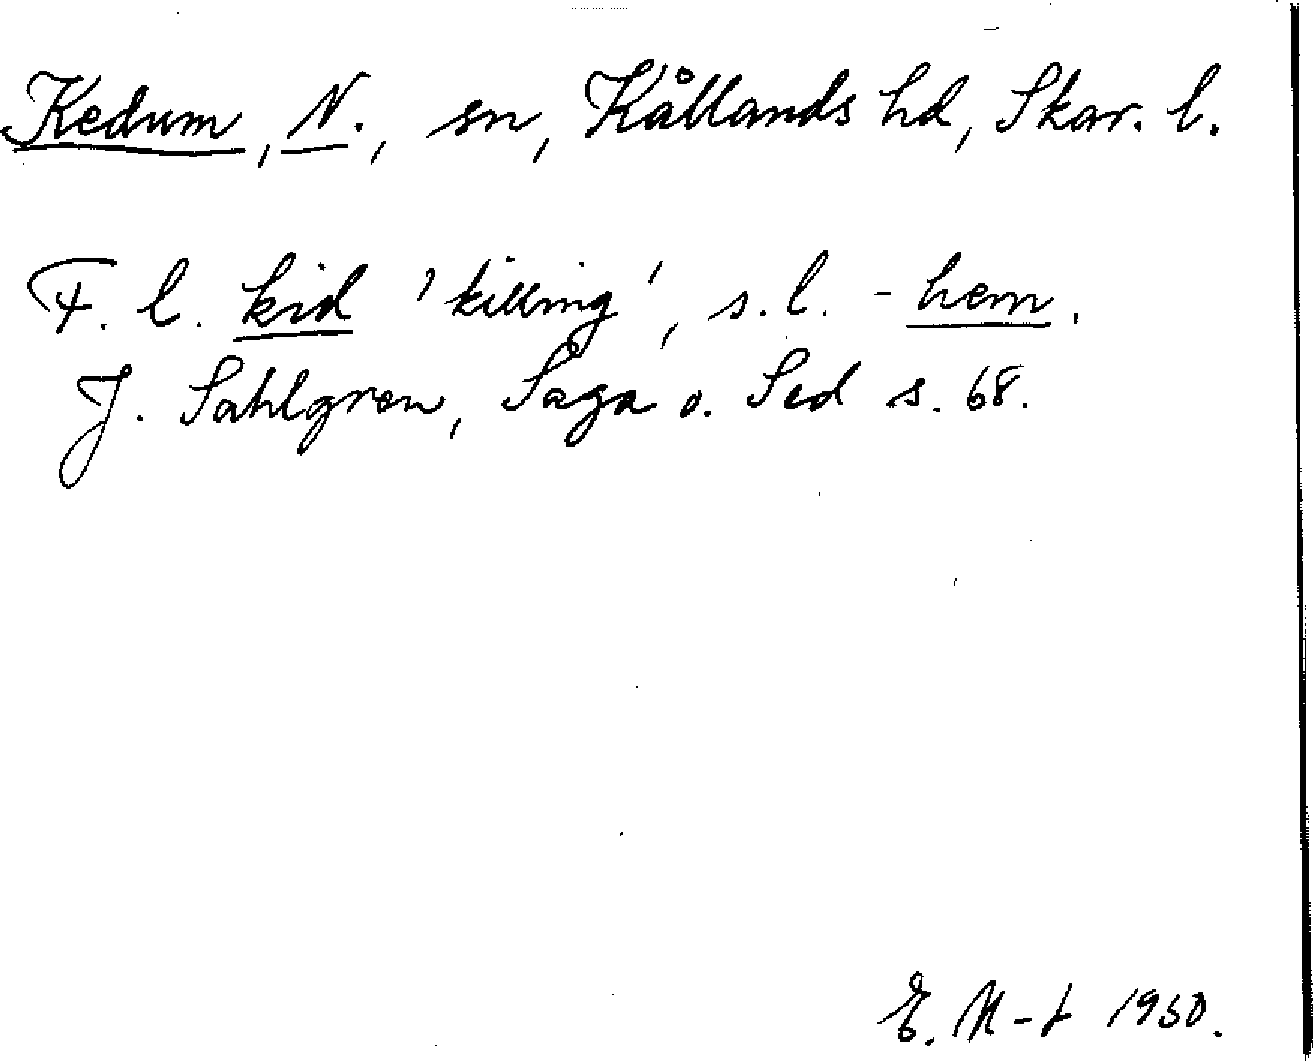 Kedum, N., sn, Kållands hd, Skar. l.
F. l. kid 'killing', s. l. - hem.
J. Sahlgren, Saga o. Sed s. 68.
E. M-t 1950.